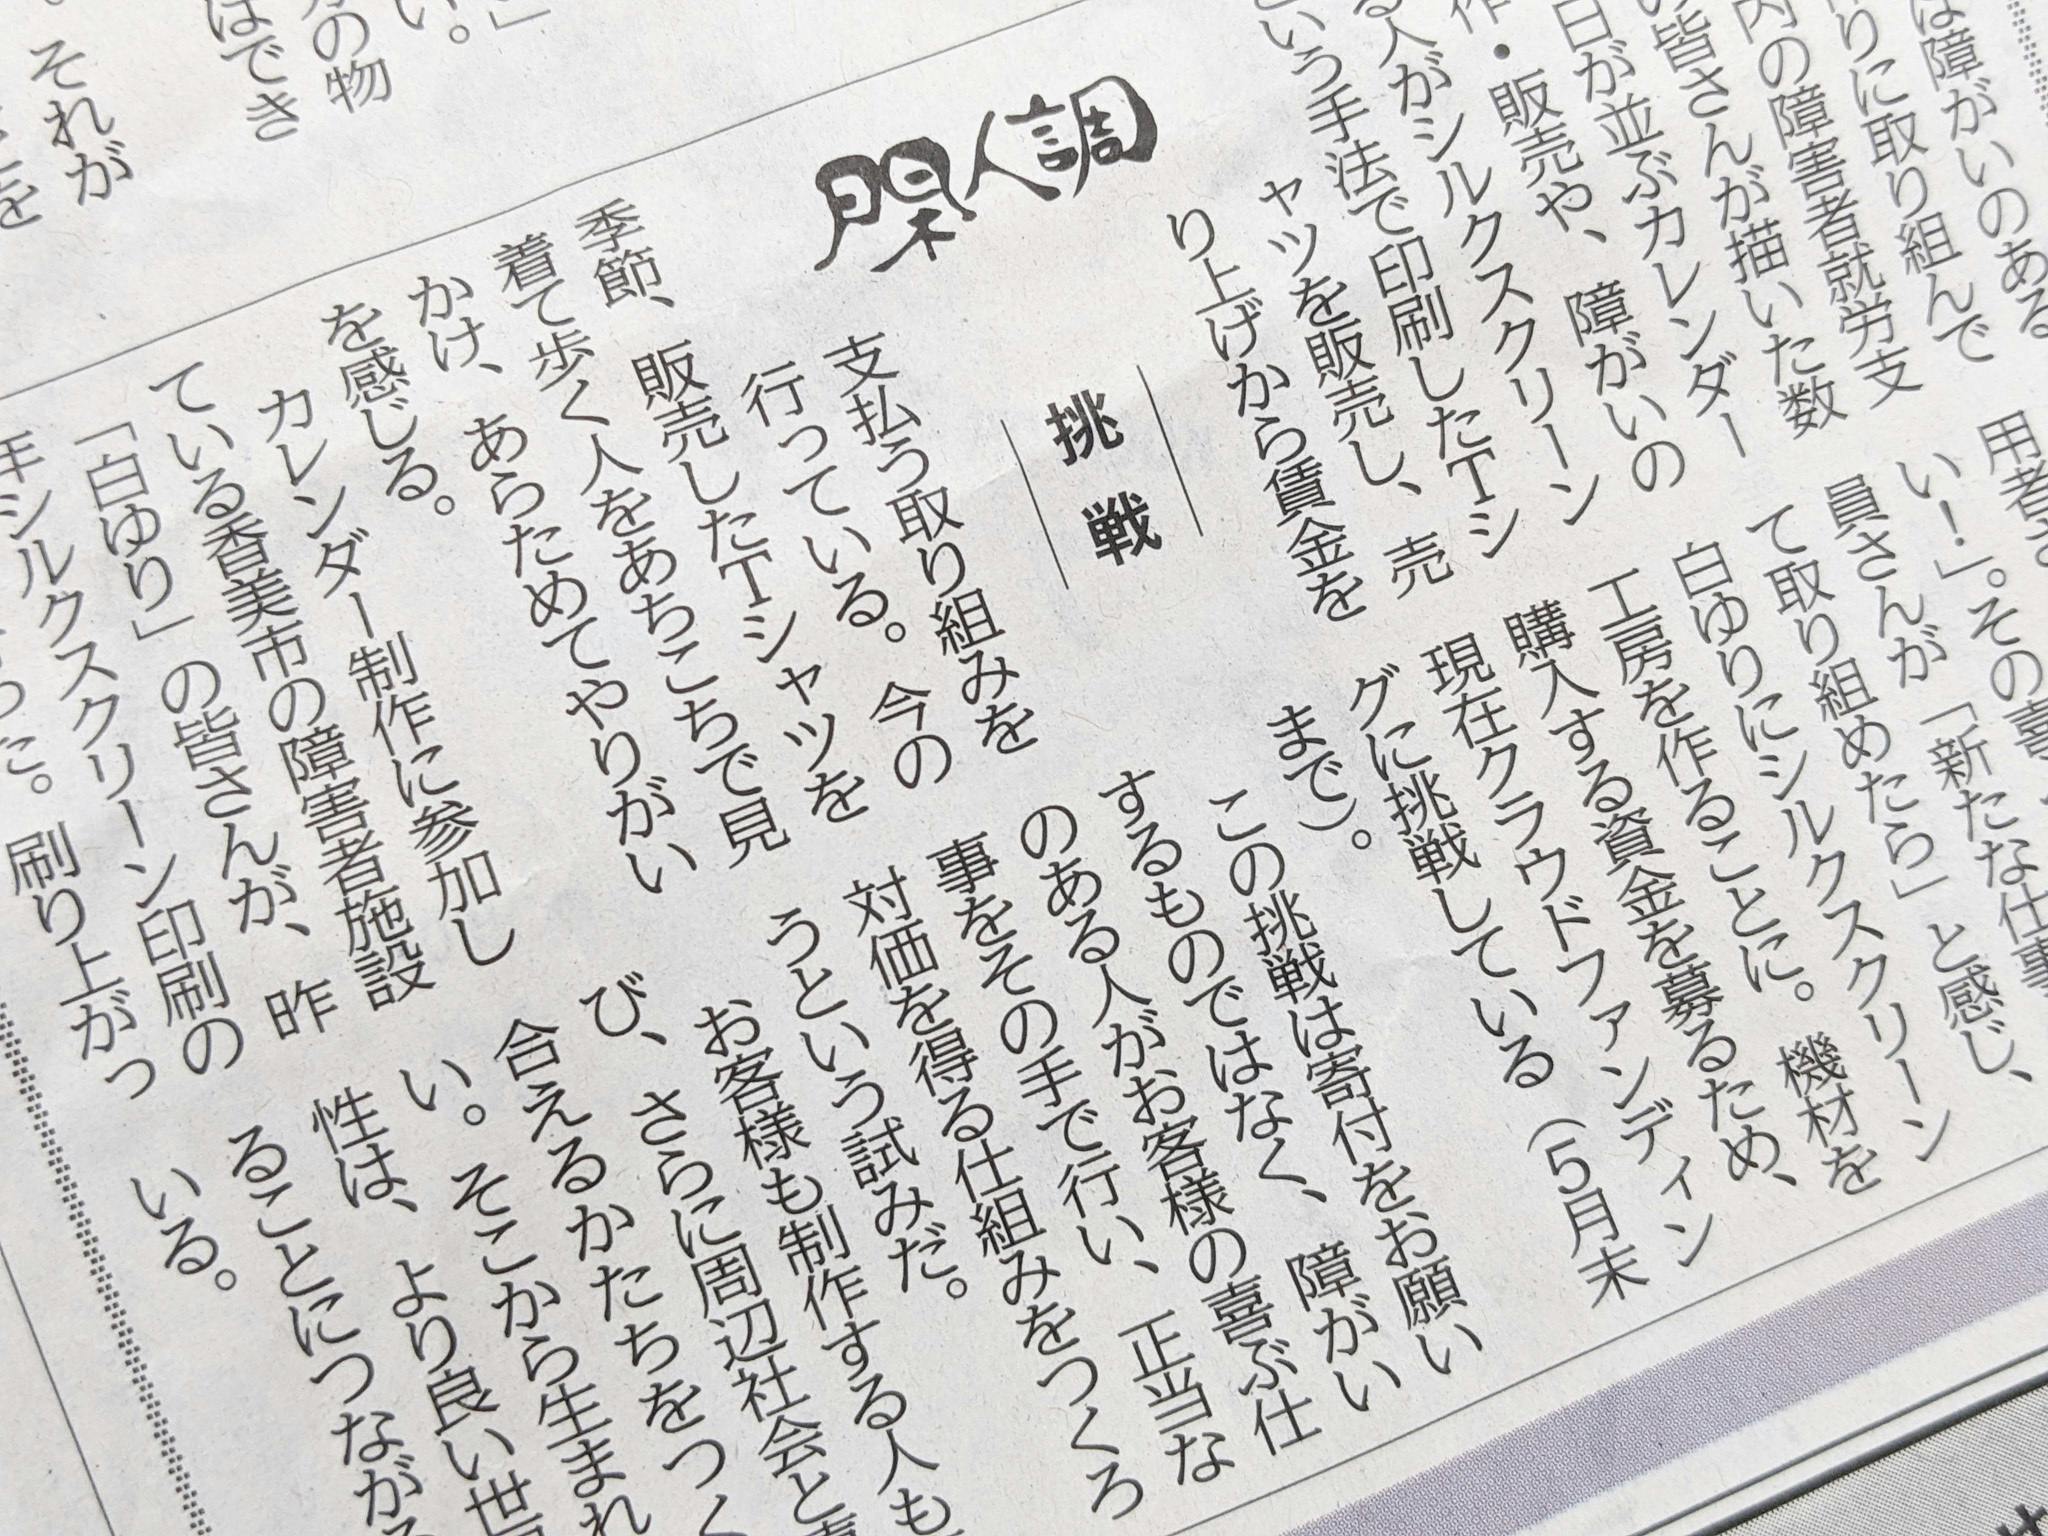 は障がいのある
りに取り組んで
内の障害者就労支
い皆さんが描いた数
日が並ぶカレンダー
作・販売や、障がいの
る人がシルクスクリーン
という手法で印刷したTシ
ャツを販売し、売
り上げから賃金を
閑人調
挑戦
支払う取り組みを
行っている。今の
季節、販売したTシャツを
着て歩く人をあちこちで見
かけ、あらためてやりがい
を感じる。
カレンダー制作に参加し
ている香美市の障害者施設
「白ゆり」の皆さんが、昨
年シルクスクリーン印刷の
った。刷り上がっ
用者さ
い!」。その喜
員さんが「新たな仕事
て取り組めたら」と感じ、
白ゆりにシルクスクリーン
工房を作ることに。機材を
購入する資金を募るため、
現在クラウドファンディン
グに挑戦している（5月末
まで）。
この挑戦は寄付をお願い
するものではなく、障がい
のある人がお客様の喜ぶ仕
事をその手で行い、正当な
対価を得る仕組みをつくろ
うという試みだ。
お客様も制作する人も
び、さらに周辺社会と
合えるかたちをつく
い。そこから生まれ
性は、より良い世
ることにつながる
いる。
」
い。
の物
はでき
それが
を